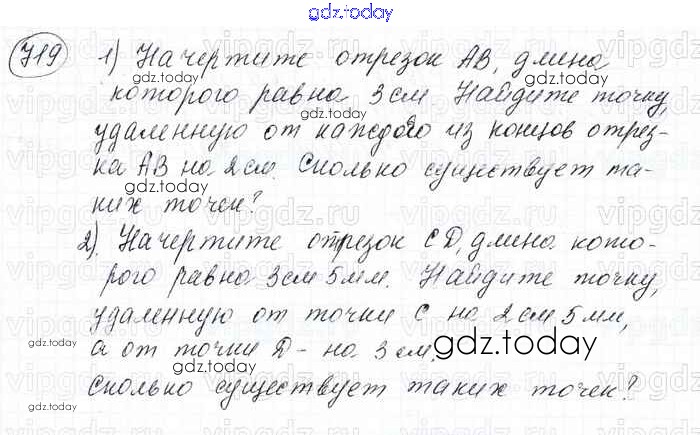 gdz.today
719
1) Начертите отрезок АВ, длина
которого равна 3 см. Найдите точку,
удаленную от каждого из концов отрез-
ка АВ на 2 см. Сколько существует та-
ких точек?
2) Начертите отрезок CD, длина кото-
рого равна 3 см 5 мм. Найдите точку,
удаленную от точки С на 2 см 5 мм,
а от точки D - на 3 см.
Сколько существует таких точек?
gdz.today